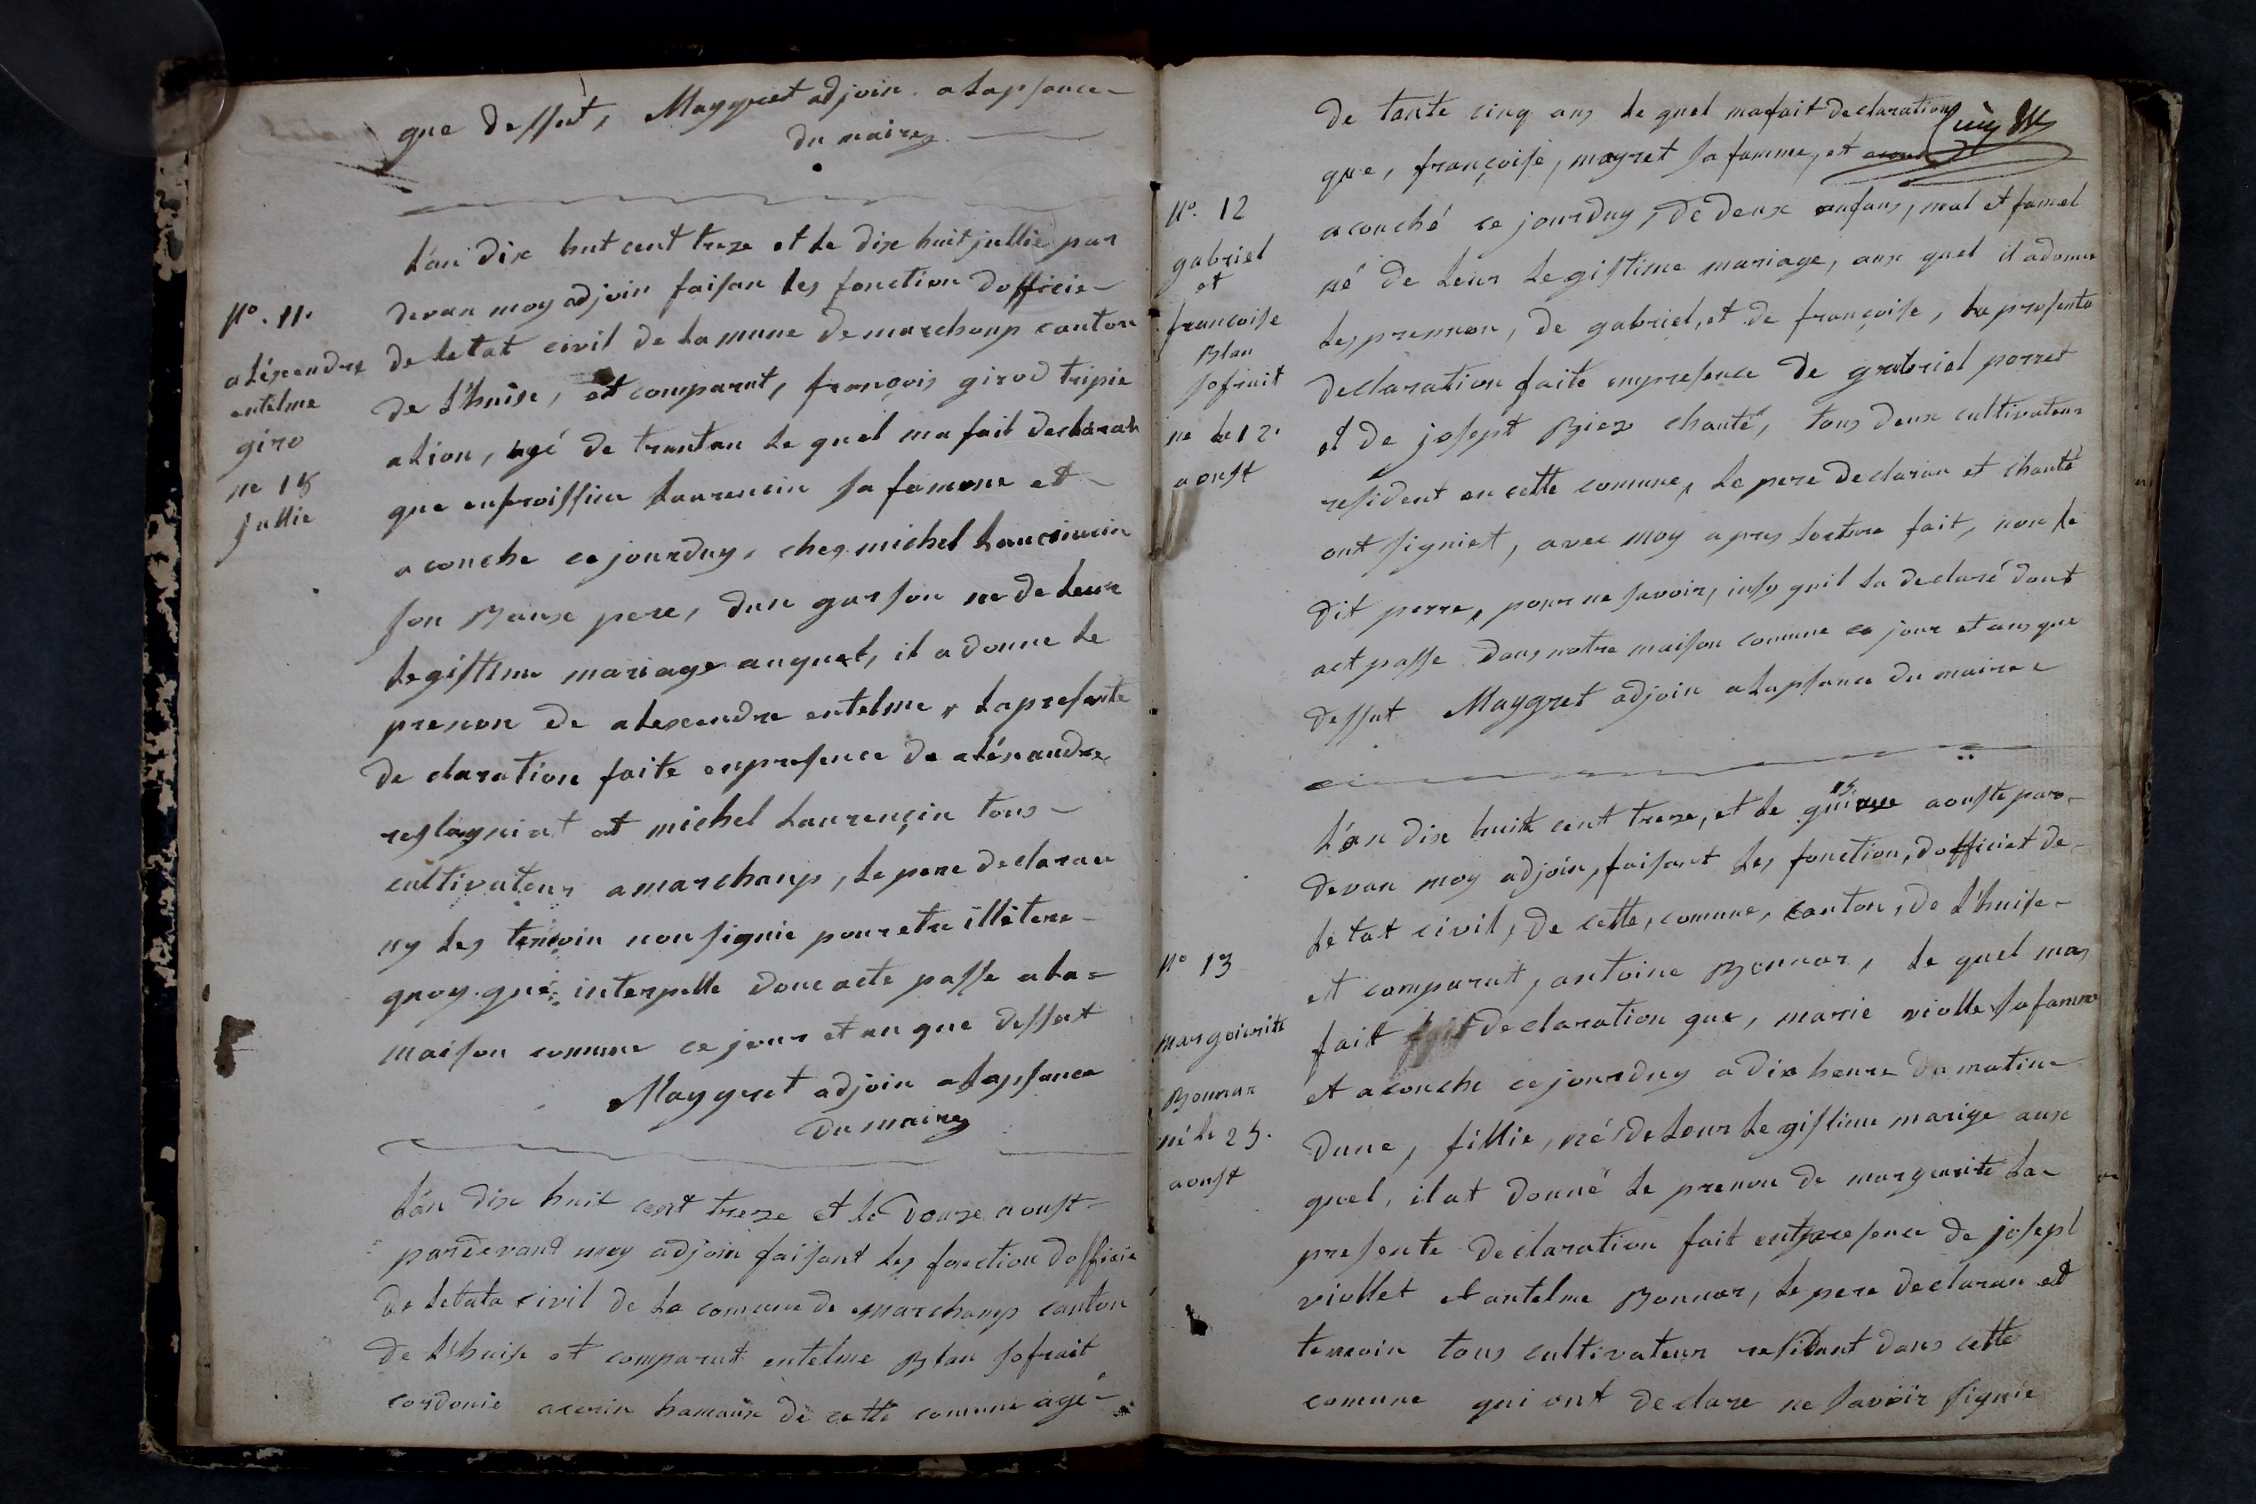 que dessut, Maygret adjoin a lapsance
du maire
N°. 11.
aléxendre
entelme
giro
ne 18
Jullie
L'an dix huit cent treze et le dix huit jullie par
devan moy adjoin faisan les fonction dofficie
de letat civil de la mune de marchanp canton
de l'huise, et comparut, françois girod tripie
alion, agé de trantan le quel ma fait declarati
que enfroissine laurencin sa famme et
a couche ce jourduy, ches michel laurencin
son Baux pere, dun garson ne de leur
legistime mariage auquel, il a donne le
prenon de alexendre entelme, la presente
declaration faite enpresence de aléxandre
reslagniat et michel laurençin tous
cultivateur a marchanp, le pere declaran
ny les temoin non signie pour etre illètere
quoy que interpelle donc acte passe a la
maison comune ce jour et an que dessut
Maygret adjoin a lapsance
du maire
L'an dix huit cent treze et le douze aoust
pardevand moy adjoin faisant les fonction dofficie
de letata civil de la comune de marchanp canton
de l'huise et comparut entelme Blan sofrait
cordonie a cerin hamaux de cette comune agé
de tante cinq ans le quel ma fait declaration
que, françoise, mayret sa famme, et
N°. 12
gabriel
et
francoise
Blan
sofrait
ne le 12.
aoust
a couché ce jourduy, de deux enfans, mal et famel
né de leur legistime mariage, aux quel il a donne
les prennon, de gabriel, et de françoise, la presente
declaration faite enpresence de gabriel porret
et de josept Biez chanté, tous deux cultivateur
resident en cette comune, le pere declaran et chanté
ont signiet, avec moy apres lecture fait, non le
dit perre, pour ne savoir, insy quil la declaré dont
act passe dans notre maison comune ce jour et ans que
dessut Maygret adjoin a lapsance du maire
L'an dix huit cent treze, et le aouste par
devan moy adjoin, faisant les fonction, dofficiet de
letat civil, de cette, comune, canton, de l'huise
N° 13
margoirite
Bonnar
né le 25.
aoust
et comparut, antoine Bonnar, le quel mas
fait declaration que, marie viollet sa famme
et a couche ce jourduy a dix heure du matine
dune, fillie, né de leur legistime marige aux
quel, il at donné le prenon de margurite la
presente declaration fait ent presence de josept
viollet et antelme Bonnar, le pere declaran et
temoin tous cultivateur resident dans cette
comune qui ont declare ne savoir signie